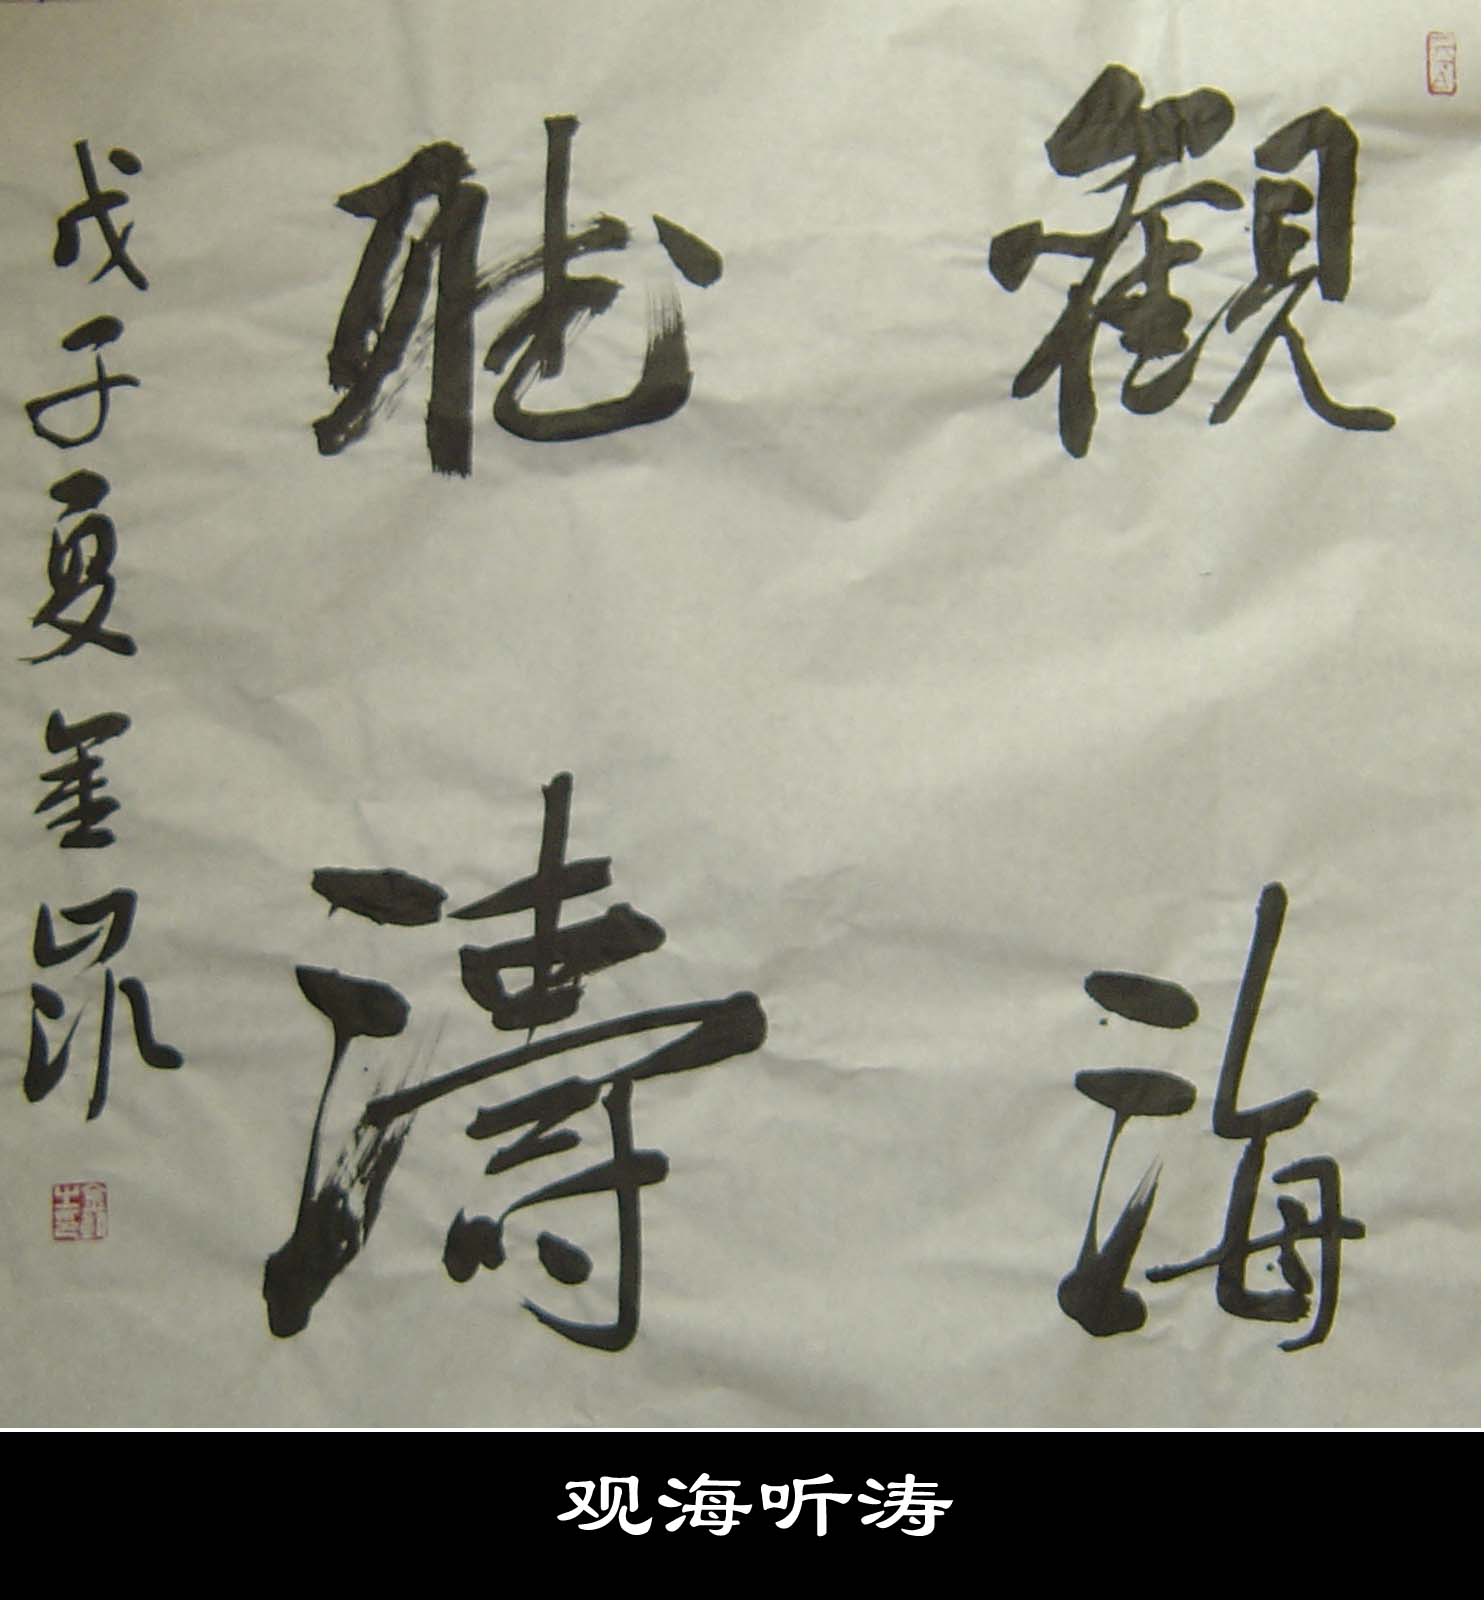 觀海
聽濤
戊子夏金
观海听涛